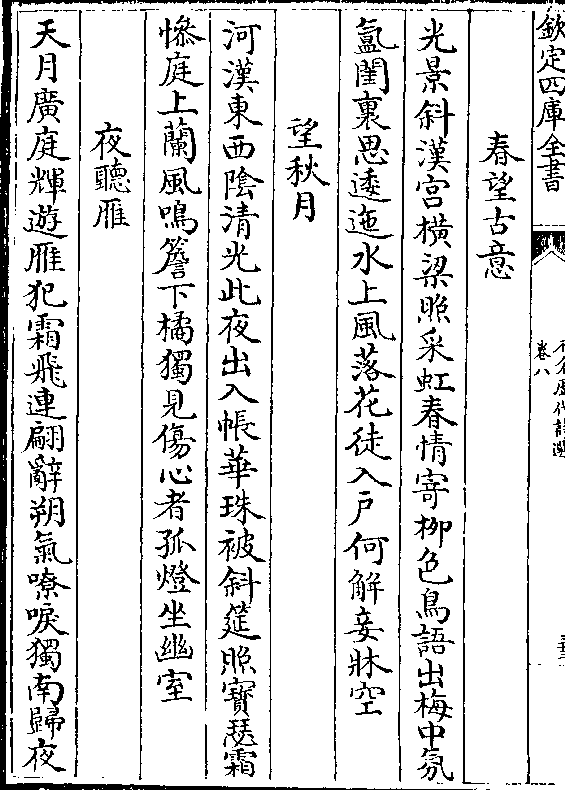 欽定四庫全書
卷八
春望古意
光景斜漢宮橫梁照采虹春情寄柳色鳥語出梅中氛
氳閨裏思逶迤水上風落花徒入戶何解妾牀空
望秋月
河漢東西陰清光此夜出入帳華珠被斜筵照寶瑟霜
慘庭上蘭風鳴簷下橘獨見傷心者孤燈坐幽室
夜聽雁
天月廣庭輝遊雁犯霜飛連翩辭朔氣嘹唳獨南歸夜